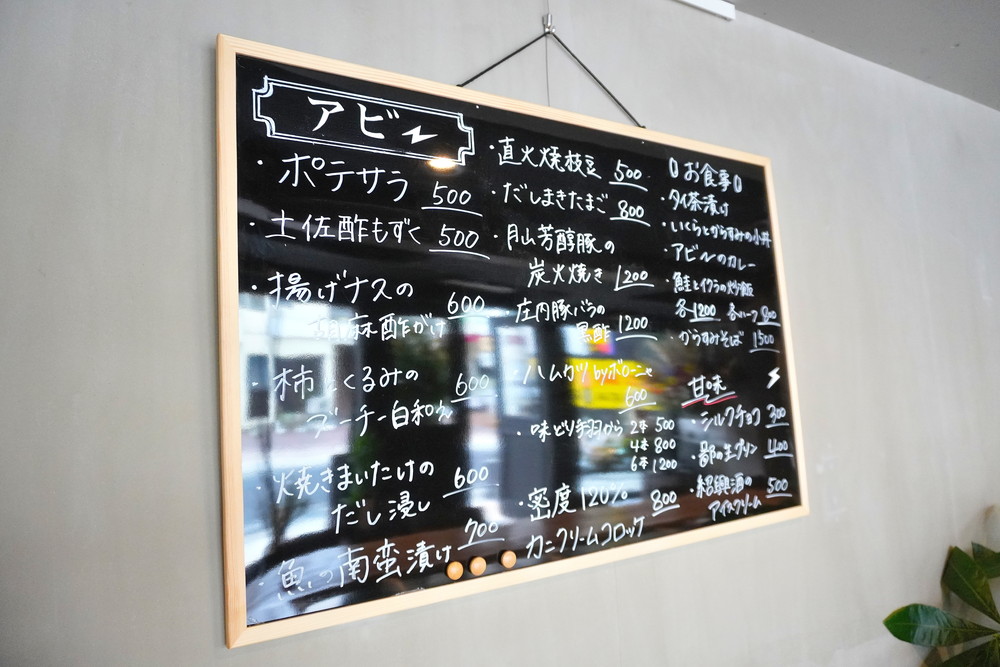 アビル
・ポテサラ 500
・土佐酢もずく 500
・揚げナスの
胡麻酢がけ 600
・柿とくるみの 600
ブーチー白和え
・焼きまいたけの 600
だし浸し
・魚の南蛮漬け 700
・直火焼枝豆 500
・だしまきたまご 800
・月山芳醇豚の
炭火焼き 1200
庄内豚バラの
黒酢 1200
・ハムカツbyボローニャ
600
・味どり手羽から 2本 500
4本 800
6本 1200
・密度120% 800
カニクリームコロッケ
お食事
・タイ茶漬け
・いくらとからすみの小丼
・アビルのカレー
・鮭とイクラの炒飯
各1200 各ハーフ800
・からすみそば 1500
甘味
・シルクチョコ 300
・都の生プリン 400
・紹興酒の 500
アイスクリーム